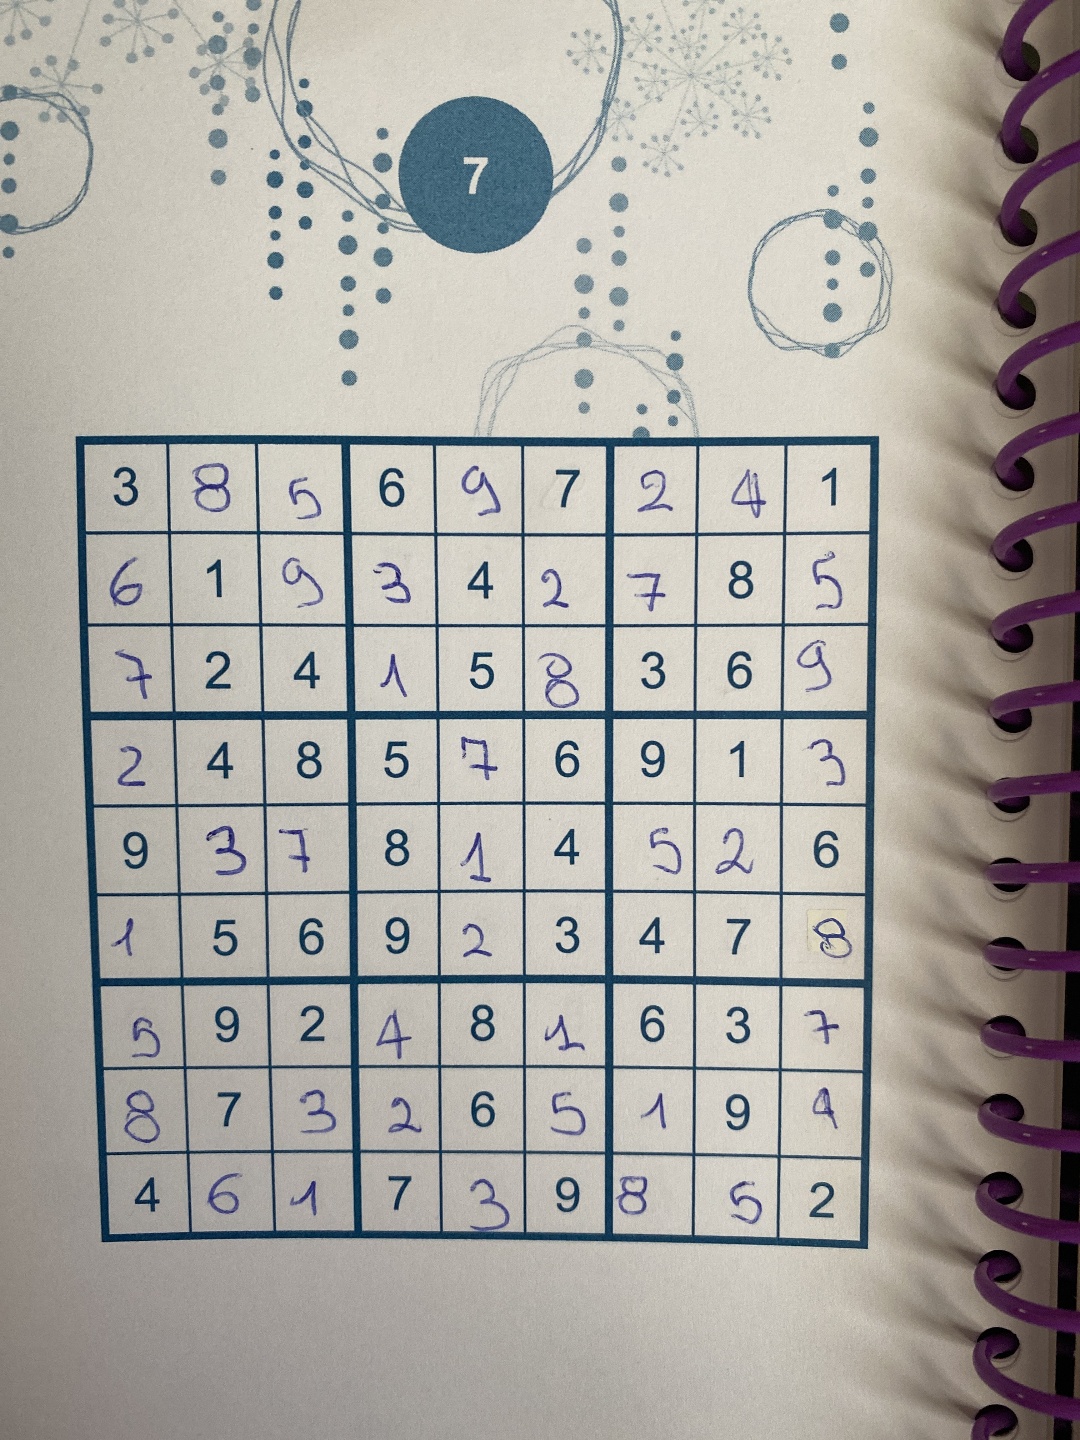 7
3 8 5 6 9 7 2 4 1
6 1 9 3 4 2 7 8 5
7 2 4 1 5 8 3 6 9
2 4 8 5 7 6 9 1 3
9 3 7 8 1 4 5 2 6
1 5 6 9 2 3 4 7 8
5 9 2 4 8 1 6 3 7
8 7 3 2 6 5 1 9 4
4 6 1 7 3 9 8 5 2